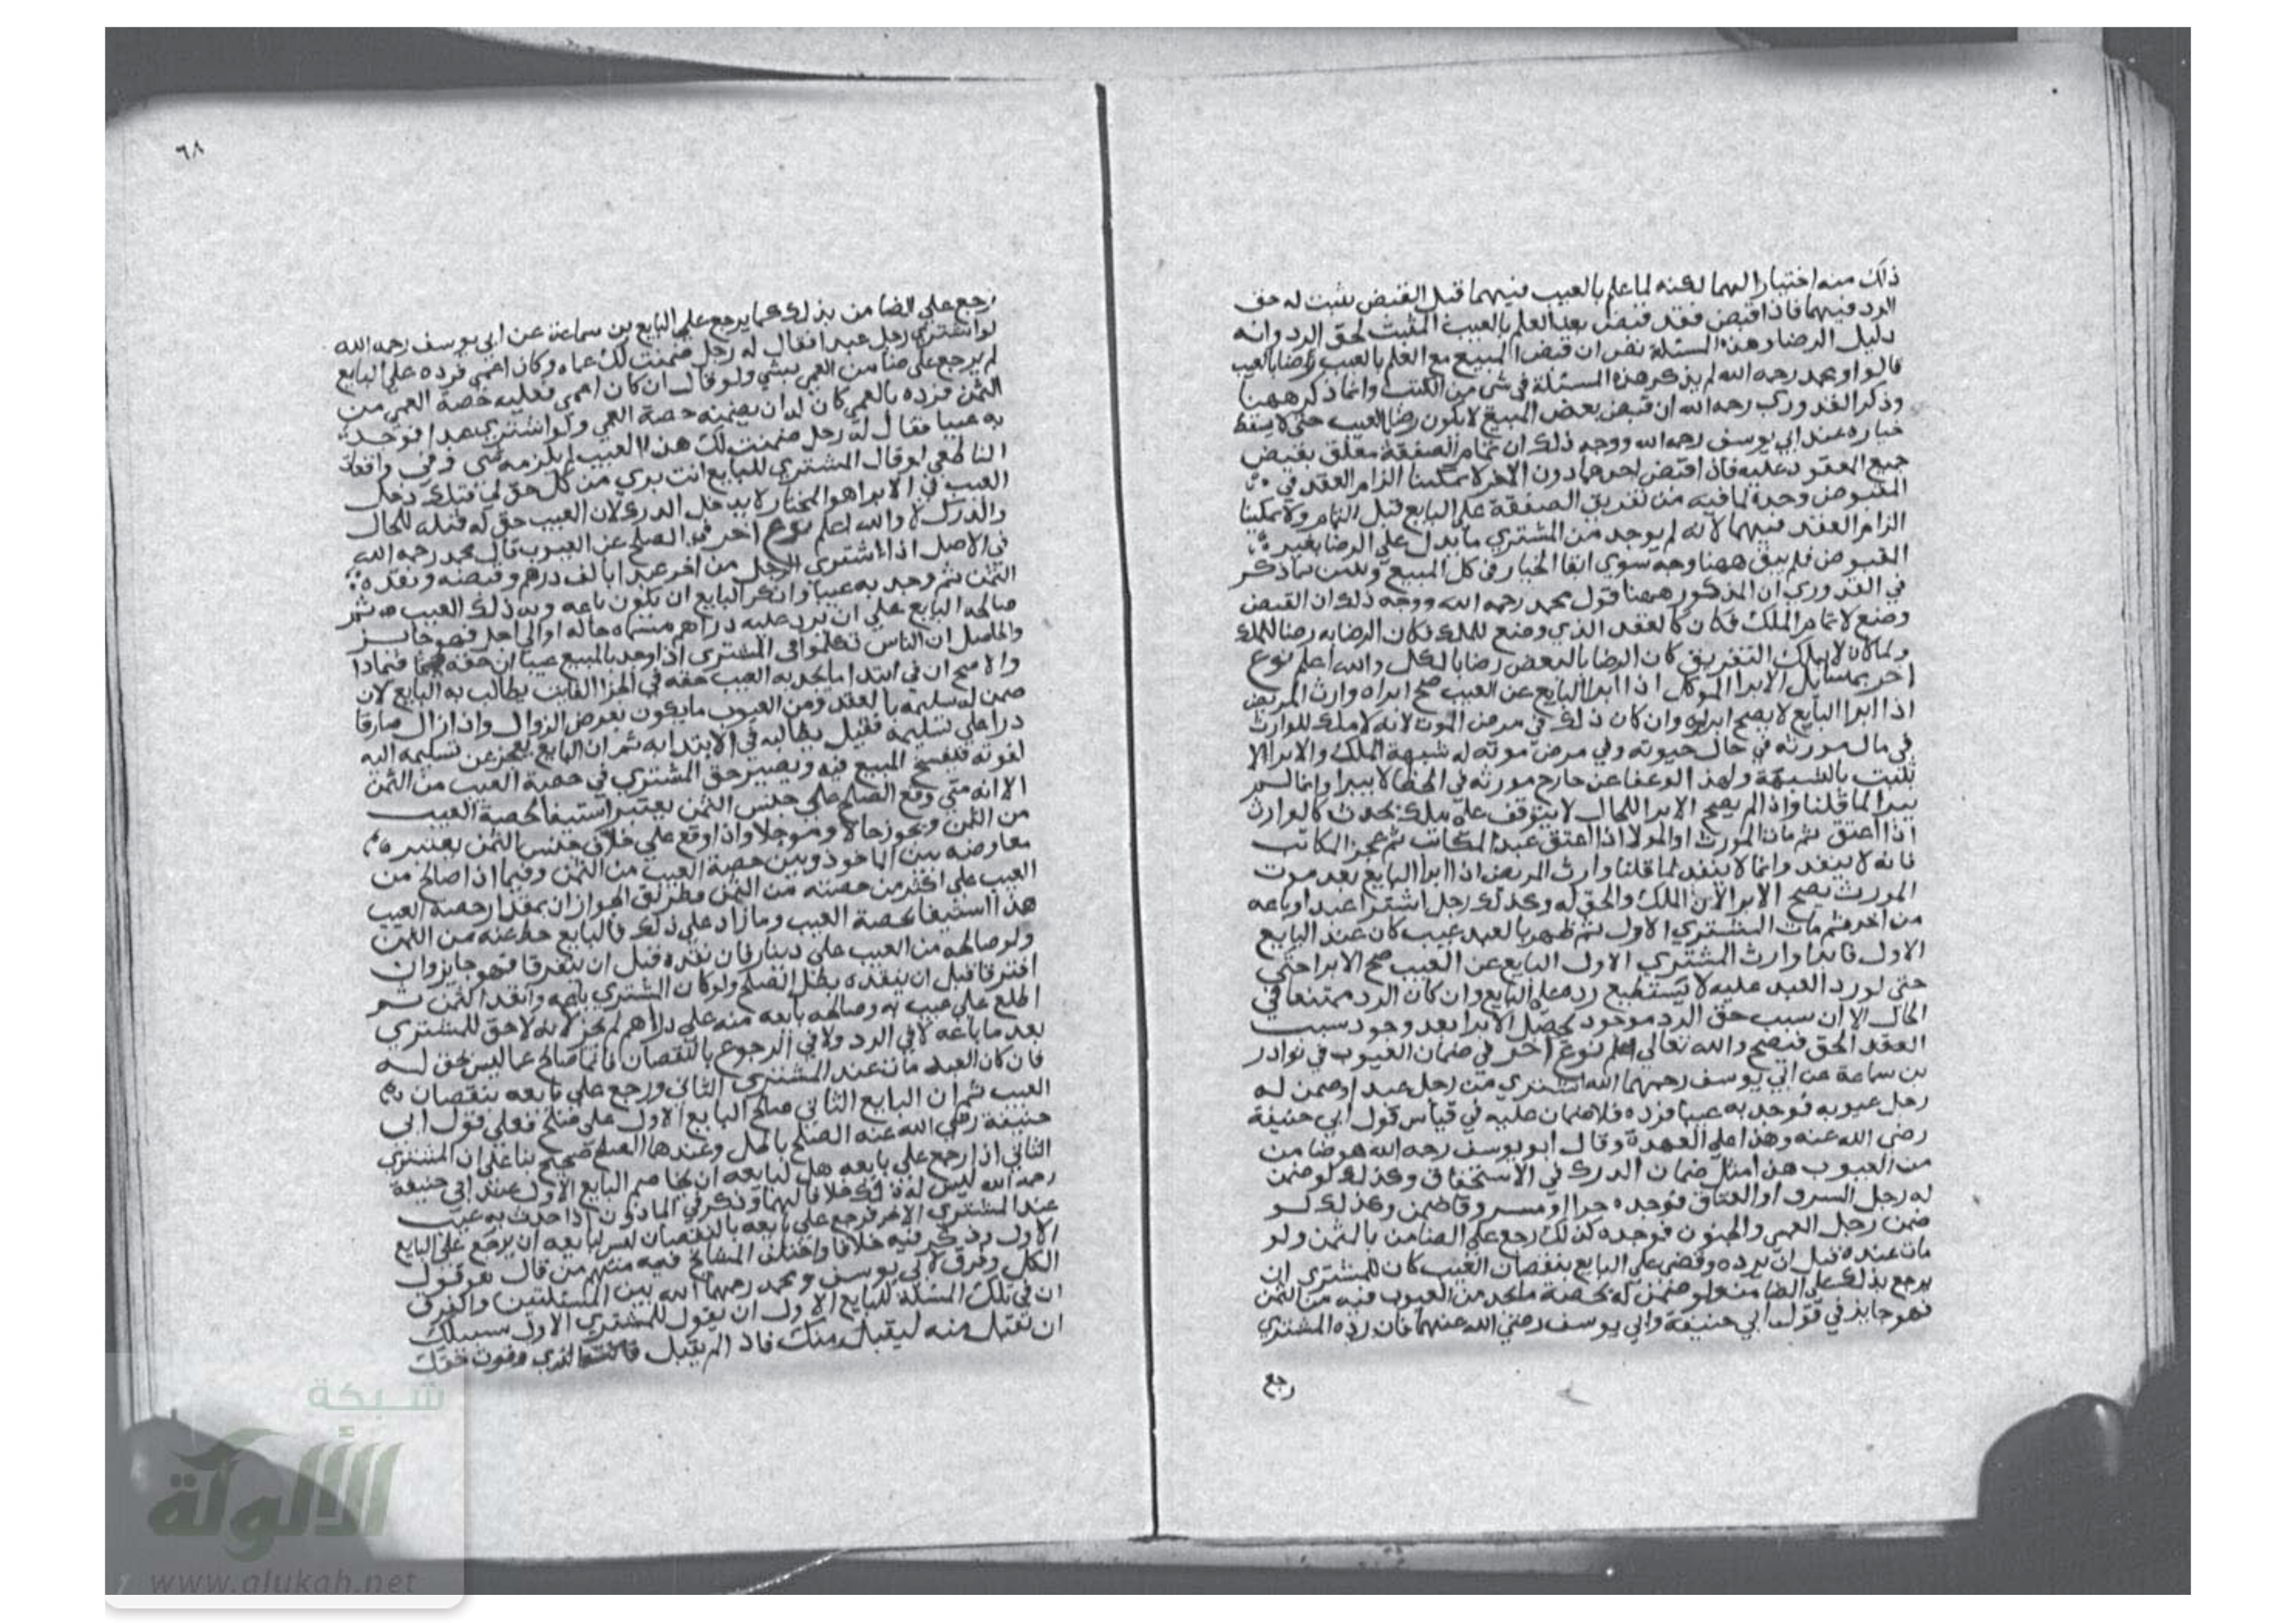 ذلك منه اختيارا لهما لكنه لما علم بالعيب فيهما قبل القبض يثبت له حق
الرد فيهما فاذا قبض فقد قبض بعد العلم بالعيب المثبت لحق الرد وانه
دليل الرضا وهذه المسئلة نص ان قبض المبيع مع العلم بالعيب رضا بالعيب
قالوا ومحمد رحمه الله لم يذكر هذه المسئلة في شي من الكتب وانما ذكر ههنا
وذكر القدوري رحمه الله ان قبض بعض المبيع لا يكون رضا بالعيب حتى لا يسقط
خياره عند ابي يوسف رحمه الله ووجه ذلك ان تمام الصفقة معلق بقبض
جميع المعقود عليه فاذا قبض احدهما دون الاخر لا يمكننا الزام العقد في
المقبوض وحده لما فيه من تفريق الصفقة على البايع قبل التمام ولا يمكننا
الزام العقد فيهما لانه لم يوجد من المشتري ما يدل على الرضا بغير
المقبوض فلم يبق ههنا وجه سوي ابقا الخيار في كل المبيع وتبين بما ذكر
في القدوري ان المذكور ههنا قول محمد رحمه الله ووجه ذلك ان القبض
وضع لاتمام الملك فكان كالعقد الذي وضع للملك فكان الرضا به رضا للملك
ولما كان لا يملك التفريق كان الرضا بالبعض رضا بالكل والله اعلم نوع
اخر بمسايل الابرا الموكل اذا ابرا البايع عن العيب صح ابراه وارث المريض
اذا ابرا البايع لا يصح ابراوه وان كان ذلك في مرض الموت لانه لا ملك للوارث
في مال مورثه في حال حيوته وفي مرض موته له شبهة الملك والابرا لا
يثبت بالشبهة ولهذا لو عفا عن جارح مورثه في الخطا لا يبرا وانما لم
يبرا لما قلنا واذا لم يصح الابرا للحال لا يتوقف على ملك يحدث كالوارث
اذا اعتق ثم مات المورث او المولا اذا اعتق عبد المكاتب ثم عجز المكاتب
فانه لا ينفد وانما لا ينفد لما قلنا وارث المريض اذا ابرا البايع بعد موت
المورث يصح الابرا لان الملك والحق له وكذلك رجل اشترا عبدا وباعه
من اخر ثم مات المشتري الاول ثم ظهر بالعبد عيب كان عند البايع
الاول فابرا وارث المشتري الاول البايع عن العيب صح الابرا حتي
حتي لو رد العبد عليه لا يستطيع رده على البايع وان كان الرد ممتنعا في
الحال الا ان سبب حق الرد موجود فحصل الابرا بعد وجود سبب
العقد الحق فيصح والله تعالى اعلم نوع اخر في ضمان العيوب في نوادر
بن سماعة عن ابي يوسف رحمهما الله اشتري من رجل عبدا وضمن له
رجل عيوبه فوجد به عيبا فرده فلا ضمان عليه في قياس قول ابي حنيفة
رضي الله عنه وهذا على العهدة وقال ابو يوسف رحمه الله هو ضامن
من العيوب هذا مثل ضمان الدرك في الاستحقاق وكذلك لو ضمن
له رجل السرق او العتاق فوجده حرا او مسروقا ضمن وكذلك لو
ضمن رجل العمي والجنون فوجده كذلك رجع علي الضامن بالثمن ولو
مات عنده قبل ان يرده وقضي علي البايع بنقصان العيب كان للمشتري ان
يرجع بذلك على الضامن ولو ضمن له بحصة ما يجد من العيوب فيه من الثمن
فهو جايز في قول ابي حنيفة وابي يوسف رضي الله عنهما فان رده المشتري
رجع
٦٨
رجع علي الضامن بذلك كما يرجع علي البايع بن سماعة عن ابي يوسف رحمه الله
لو اشتري رجل عبدا فقال له رجل ضمنت لك عماه وكان اعمي فرده علي البايع
لم يرجع على ضامن العمي بشي ولو قال ان كان اعمي فعليه حصة العمي من
الثمن فرده بالعمي كان له ان يضمنه حصة العمي ولو اشتري عبدا فوجد
به عيبا فقال له رجل ضمنت لك هذا العيب لم يلزمه شي وفي واقعات
الناطفي لو قال المشتري للبايع انت بري من كل حق لي قبلك دخل
العيب في الابرا هو المختار لا يدخل الدرك لان العيب حق له قبله للحال
والدرك لا والله اعلم نوع اخر في الصلح عن العيوب قال محمد رحمه الله
في الاصل اذا اشتري الرجل من اخر عبدا بالف درهم وقبضه ونقده
الثمن ثم وجد به عيبا وانكر البايع ان يكون باعه وبه ذلك العيب ثم
صالحه البايع على ان يرد عليه دراهم مسماه حالة او الي اجل فهو جايز
والحاصل ان الناس تكلموا في المشتري اذا وجد بالمبيع عيبا ان حقه فيما ذا
والاصح ان في ابتدا ما يجد به العيب حقه في الجزا الفايت يطالب به البايع لان
ضمن له تسليمه بالعقد ومن العيوب ما يكون بعرض الزوال واذا زال صار قا
درا علي تسليمه فقيل يطالبه في الابتدا به ثم ان البايع يعجز عن تسليمه اليه
لفوته فيفسخ المبيع فيه ويصير حق المشتري في حصة العيب من الثمن
الا انه متي وقع الصلح علي جنس الثمن يعتبر استيفا لحصة العيب
من الثمن ويجوز حالا وموجلا واذا وقع علي خلاف جنس الثمن يعتبر
معاوضه بين الماخوذ وبين حصة العيب من الثمن وفيما اذا صالح من
العيب على اكثر من حصته من الثمن فطريق الجواز ان بمقدار حصة العيب
هذا استيفا لحصة العيب وما زاد علي ذلك فالبايع حط عنه من الثمن
ولو صالحه من العيب علي دينار فان نقده قبل ان يتفرقا فهو جايز وان
افترقا قبل ان ينقده بطل الصلح ولو كان المشتري باعه وانتقد الثمن ثم
اطلع على عيب به وصالحه بايعه منه على دراهم لم يجز لانه لا حق للمشتري
بعد ما باعه لا في الرد ولا في الرجوع بالنقصان فانما صالح عما ليس بحق له
فان كان العبد مات عند المشتري الثاني ورجع علي بايعه بنقصان
العيب ثم ان البايع الثاني صالح البايع الاول على صلح فعلي قول ابي
حنيفة رضي الله عنه الصلح باطل وعندهما الصلح صحيح بنا على ان المشتري
الثاني اذا رجع علي بايعه هل لبايعه ان يخاصم البايع الاول عند ابي حنيفة
رحمه الله ليس له ذلك خلافا لهما وذكر في الماذون اذا حدث به عيب
عند المشتري الاخر فرجع علي بايعه بالنقصان ليس لبايعه ان يرجع علي البايع
الاول وذكر فيه خلافا واختلف المشايخ فيه منهم من قال هو قول
الكل وفرق لابي يوسف ومحمد رحمهما الله بين المسئلتين والفرق
ان في تلك المسئلة للبايع الاول ان يقول للمشتري الاول سبيلك
ان تقبل منه ليقبل منك فاذا لم يقبل وفوت حقك
شبكة
الألوكة
www.alukah.net